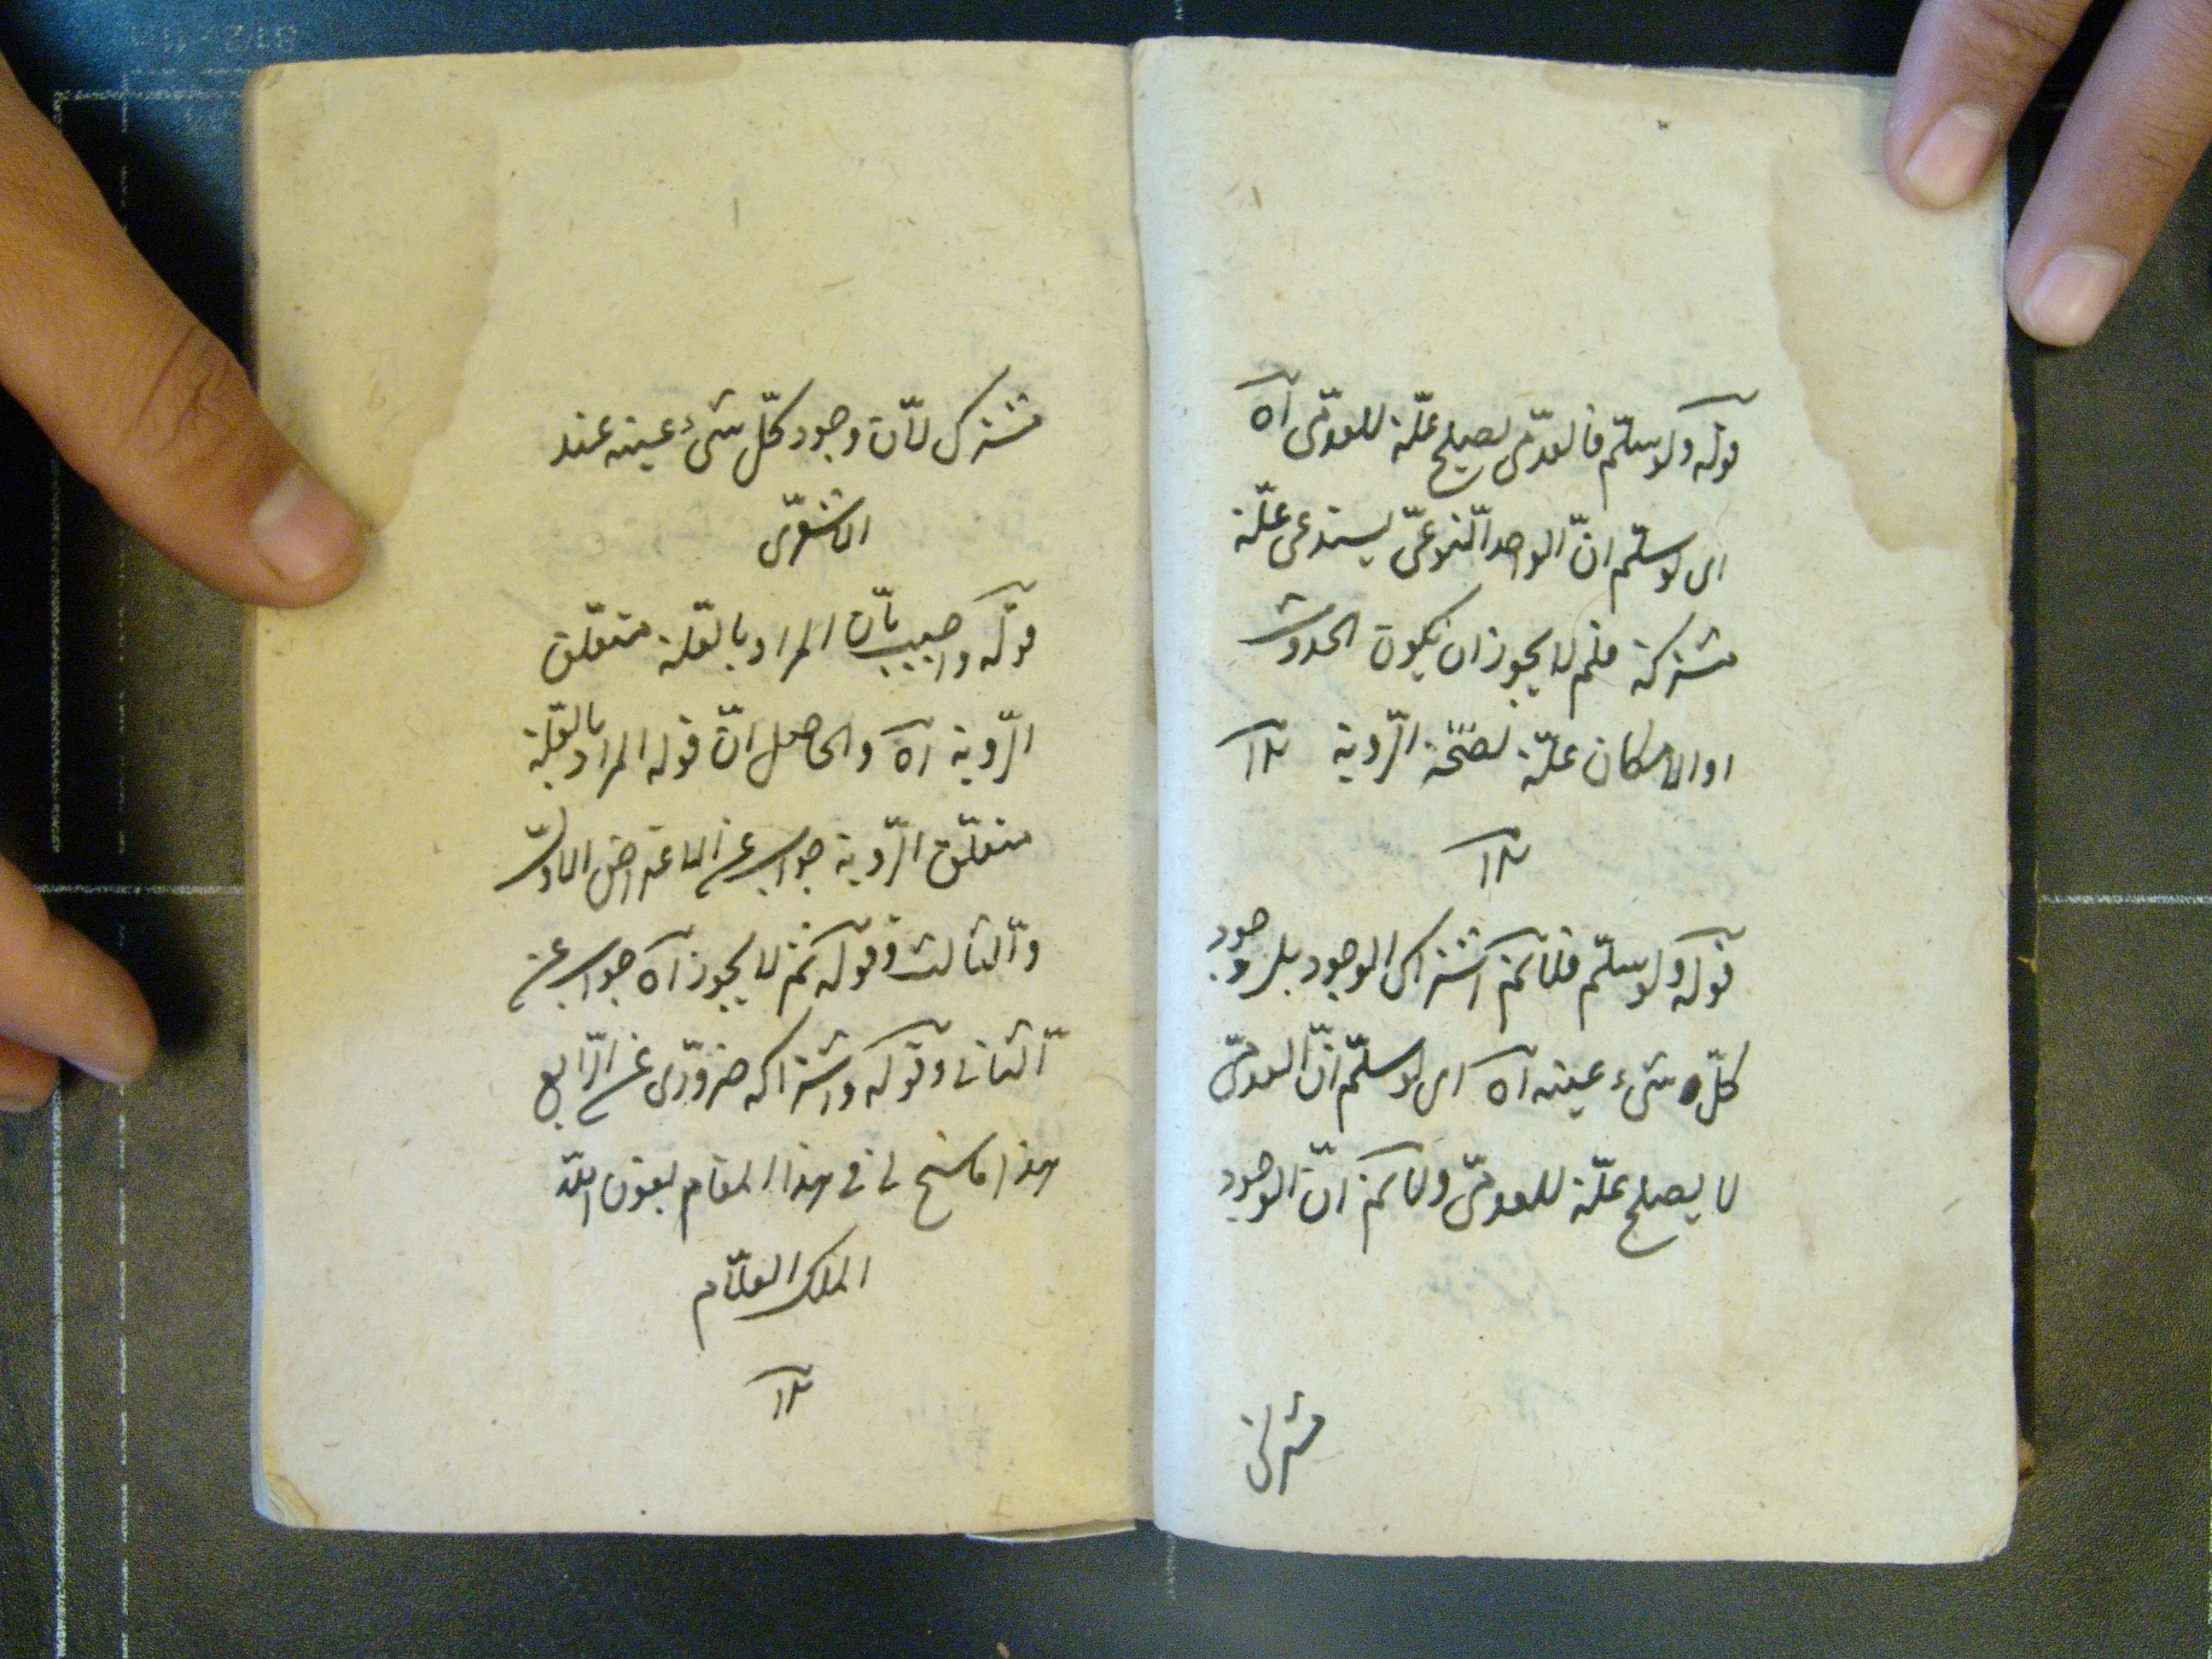 قوله ولو سلّم فالعدمّى يصلح علّة للعدمّى آه
اى لو سلّم انّ الواحد النّوعىّ يستدعى علّة
مشتركة فلم لا يجوز ان يكون الحدوث
او الامكان علّة لصحّة الرّوية
قوله ولو سلّم فلا نم اشتراك الوجود بل وجود
كلّ شىء عينه آه اى لو سلّم انّ العدمىّ
لا يصلح علّة للعدمىّ ولا نم انّ الوجود
مشترك لانّ وجود كلّ شىء عينه عند
الاشعرىّ
قوله واجيب بانّ المراد بالعلّة متعلّق
الرّوية آه والحاصل انّ قوله المراد بالعلّة
متعلّق الرّوية جواب عن الاعتراض الاوّل
والثّالث وقوله ثم لا يجوز آه جواب عن
الثّانى وقوله واشتراكه ضرورّى عن الرّابع
هذا ما سنح لى فى هذا المقام بعون اللّه
الملك العلّام